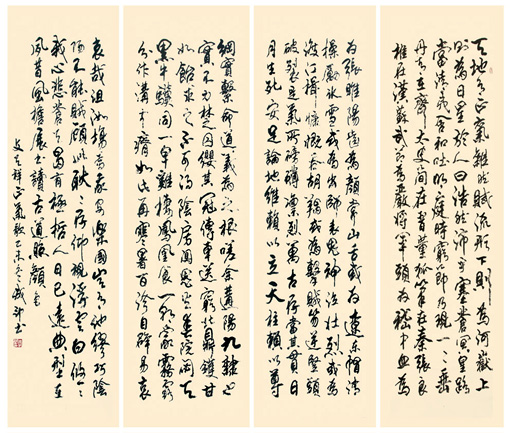 天地有正氣雜然賦流形下則為河嶽上
則為日星於人曰浩然沛乎塞蒼冥皇路
當清夷含和吐明庭時窮節乃見一一垂
丹青在齊太史簡在晉董狐筆在秦張良
椎在漢蘇武節為嚴將軍頭為嵇侍中血為
為張睢陽齒為顏常山舌或為遼東帽清
操厲冰雪或為出師表鬼神泣壯烈或為
渡江楫慷慨吞胡羯或為擊賊笏逆豎頭
破裂是氣所磅礴凜烈萬古存當其貫日
月生死安足論地維賴以立天柱賴以尊
綱實繫命道義為之根嗟余遘陽九隸也
實不力楚囚纓其冠傳車送窮北鼎鑊甘
如飴求之不可得陰房闃鬼火春院閟天
黑牛驥同一皁雞棲鳳凰食一朝蒙霧露
分作溝中瘠如此再寒暑百沴自辟易哀
哀哉沮洳場為我安樂國豈有他繆巧陰
陽不能賊顧此耿耿存仰視浮雲白悠悠
我心悲蒼天曷有極哲人日已遠典型在
夙昔風檐展書讀古道照顏色
文天祥正氣歌乙未冬書